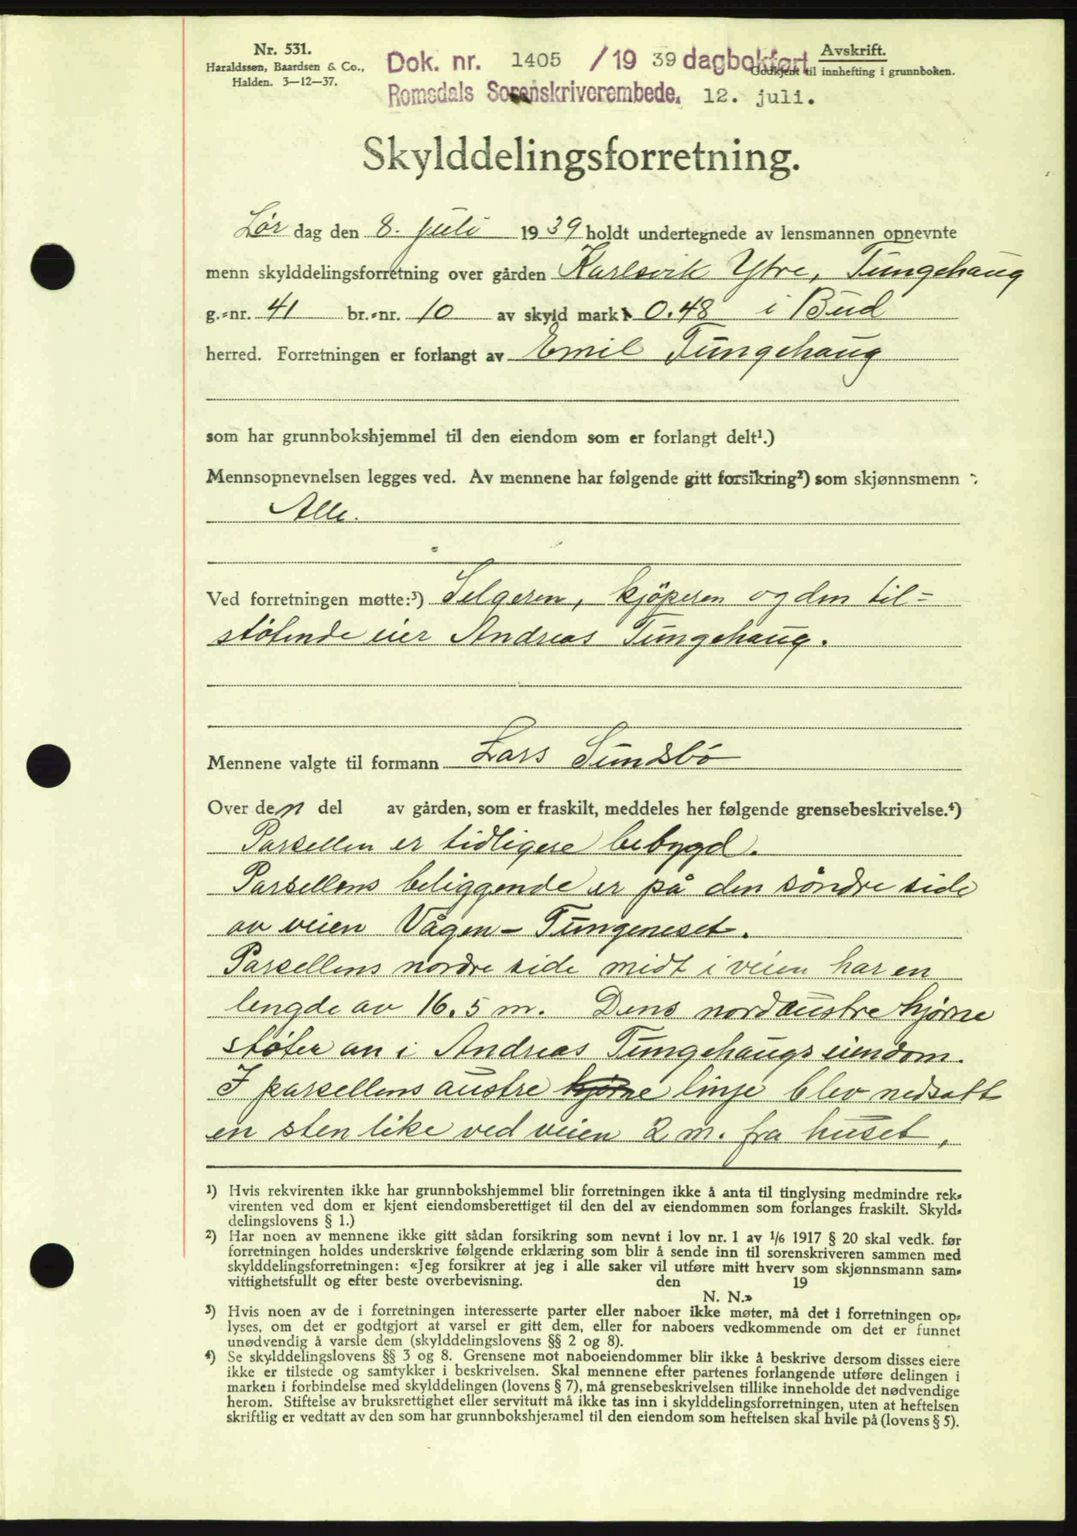 Nr. 531.
Haraldssøn, Baardsen & Co.,
Halden. 3—12—37.
Dok. nr. 1405 /19 39 dagbokført
Romsdals Sorenskriverembede, 12. juli.
Avskrift.
Godkjent til innhefting i grunnboken.
Skylddelingsforretning.
Lør dag den 8. juli 19 39 holdt undertegnede av lensmannen opnevnte
menn skylddelingsforretning over gården Karlsvik Ytre, Tungehaug
g.-nr. 41 br.-nr. 10 av skyld mark 0.48 i Bud
herred. Forretningen er forlangt av Emil Tungehaug
som har grunnbokshjemmel til den eiendom som er forlangt delt¹.)
Mennsopnevnelsen legges ved. Av mennene har følgende gitt forsikring²) som skjønnsmenn :
Alle.
Ved forretningen møtte:³) Selgeren, kjöperen og den til=
støtende eier Andreas Tungehaug.
Mennene valgte til formann Lars Sundsbö
Over den del av gården, som er fraskilt, meddeles her følgende grensebeskrivelse.⁴)
Parsellen er tidligere bebygd.
Parsellens beliggende er på den söndre side
av veien Vågen - Tungeneset.
Parsellens nordre side midt i veien har en
lengde av 16.5 m. Dens nordaustre hjørne
støter an i Andreas Tungehaugs eiendom.
I parsellens austre hjørne linje blev nedsatt
en sten like ved veien 2 m. fra huset,
¹) Hvis rekvirenten ikke har grunnbokshjemmel blir forretningen ikke å anta til tinglysing medmindre rek-
virenten ved dom er kjent eiendomsberettiget til den del av eiendommen som forlanges fraskilt. Skyld-
delingslovens § 1.)
²) Har noen av mennene ikke gitt sådan forsikring som nevnt i lov nr. 1 av 1/6 1917 § 20 skal vedk. før
forretningen holdes underskrive følgende erklæring som blir å sende inn til sorenskriveren sammen med
skylddelingsforretningen: «Jeg forsikrer at jeg i alle saker vil utføre mitt hverv som skjønnsmann sam-
vittighetsfullt og efter beste overbevisning. den 19
N. N.»
³) Hvis noen av de i forretningen interesserte parter eller naboer ikke møter, må det i forretningen op-
lyses, om det er godtgjort at varsel er gitt dem, eller for naboers vedkommende om det er funnet
unødvendig å varsle dem (skylddelingslovens §§ 2 og 8).
⁴) Se skylddelingslovens §§ 3 og 8. Grensene mot naboeiendommer blir ikke å beskrive dersom disses eiere
ikke er tilstede og samtykker i beskrivelsen. Skal mennene efter partenes forlangende utføre delingen i
marken i forbindelse med skylddelingen (lovens § 7), må grensebeskrivelsen tillike inneholde det nødvendige
herom. Stiftelse av bruksrettighet eller servitutt må ikke tas inn i skylddelingsforretningen, uten at heftelsen
skriftlig er vedtatt av den som har grunnbokshjemmel til den eiendom som heftelsen skal hvile på (lovens § 5).